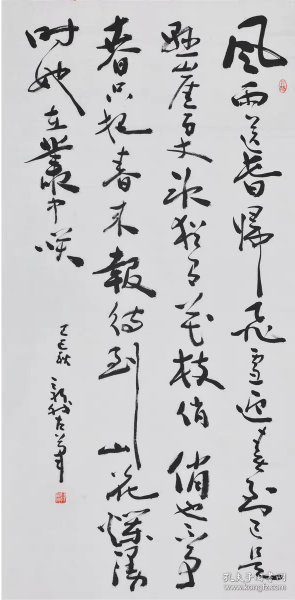 風雨送春歸飛雪迎春到已是
懸崖百丈冰猶有花枝俏俏也不争
春只把春来報待到山花爛漫
时她在叢中咲
丁巳秋
孔夫子旧书网